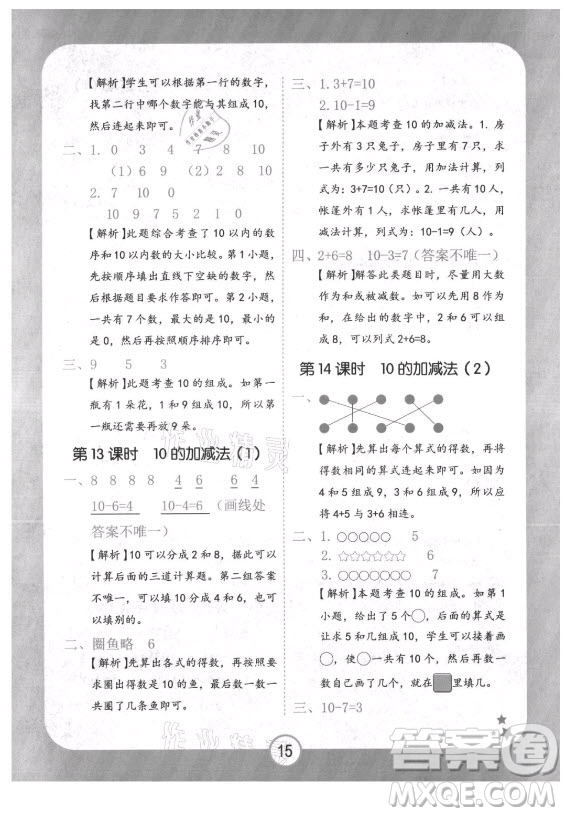 【解析】学生可以根据第一行的数字，
找第二行中哪个数字能与其组成 10，
然后连起来即可。
二、1. 0 3 4 7 8 10
（1）6 9 （2）8 8
2. 7 10
10 9 7 5 2 1 0
【解析】此题综合考查了 10 以内的数
序和 10 以内数的大小比较。第 1 小题，
先按顺序填出直线下空缺的数字，然
后根据题目要求作答即可。第 2 小题，
一共有 7 个数，最大的是 10，最小的
是 0，然后按照顺序排序即可。
三、9 5 3
【解析】此题考查 10 的组成。如第
一瓶有 1 朵花，1 和 9 组成 10，所以第
一瓶还需要再放 9 朵。
第 13 课时 10 的加减法（1）
一、8 8 8 8 4 6 6 4
10-6=4 10-4=6（画线处
答案不唯一）
【解析】10 可以分成 2 和 8，所以可以
计算后面的三道计算题。第二组答案
不唯一，可以填算式中出现的数，也可
以填别的。
二、圈鱼略 6
【解析】先算出各式的得数，再根据要
求圈出得数是 10 的鱼，最后数一数共
圈了几条鱼即可。
三、1. 3+7=10
2. 10-1=9
【解析】本题考查 10 的加减法。1. 房
子外有 3 只兔子，房子里有 7 只，求
一共有多少只兔子，用加法计算，列
式为：3+7=10（只）。2. 一共有 10 人，
帐篷里有 1 人，求帐篷外有几人，用
减法计算，列式为：10-1=9（人）。
四、2+6=8 10-3=7（答案不唯一）
【解析】解答此类题目时，尽量用大数
作为和或被减数。如先用 8 作为和，
在给出的数字中，2 和 6 可以组成
8，可以列式 2+6=8。
第 14 课时 10 的加减法（2）
一、
【解析】先算出每个算式的得数，再将
得数相同的算式连起来即可。如第一
个，4 和 5 组成 9，3 和 6 组成 9，所以
将 4+5 与 3+6 连在一起。
二、1. ○○○○○ 5
2. ☆☆☆☆☆☆ 6
3. ○○○○○○○ 7
【解析】本题考查 10 的组成。如第 1
小题，给出了 5 个○，后面的算式也
是求 5 和几组成 10，学生可以接着画
○，使○一共有 10 个，然后再数一
数自己画了几个，就在 里填几。
三、10-7=3
15
答案圈
MXQE.COM
作业精灵